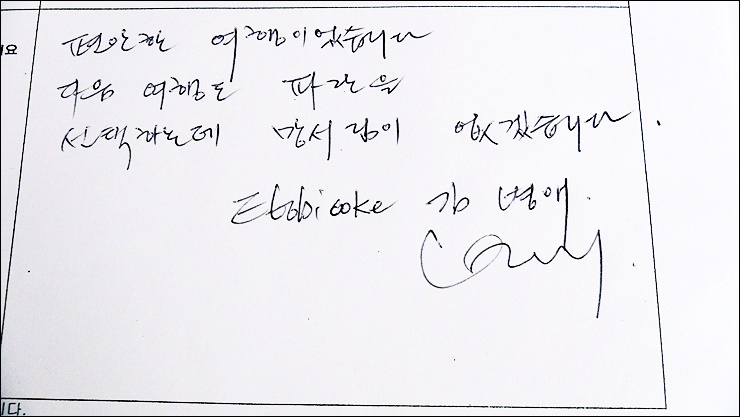 세요
편안한 여행이었습니다
다음 여행도 파란을
선택하는데 망서림이 없겠습니다.
Etobicoke 김 병애.
니다.